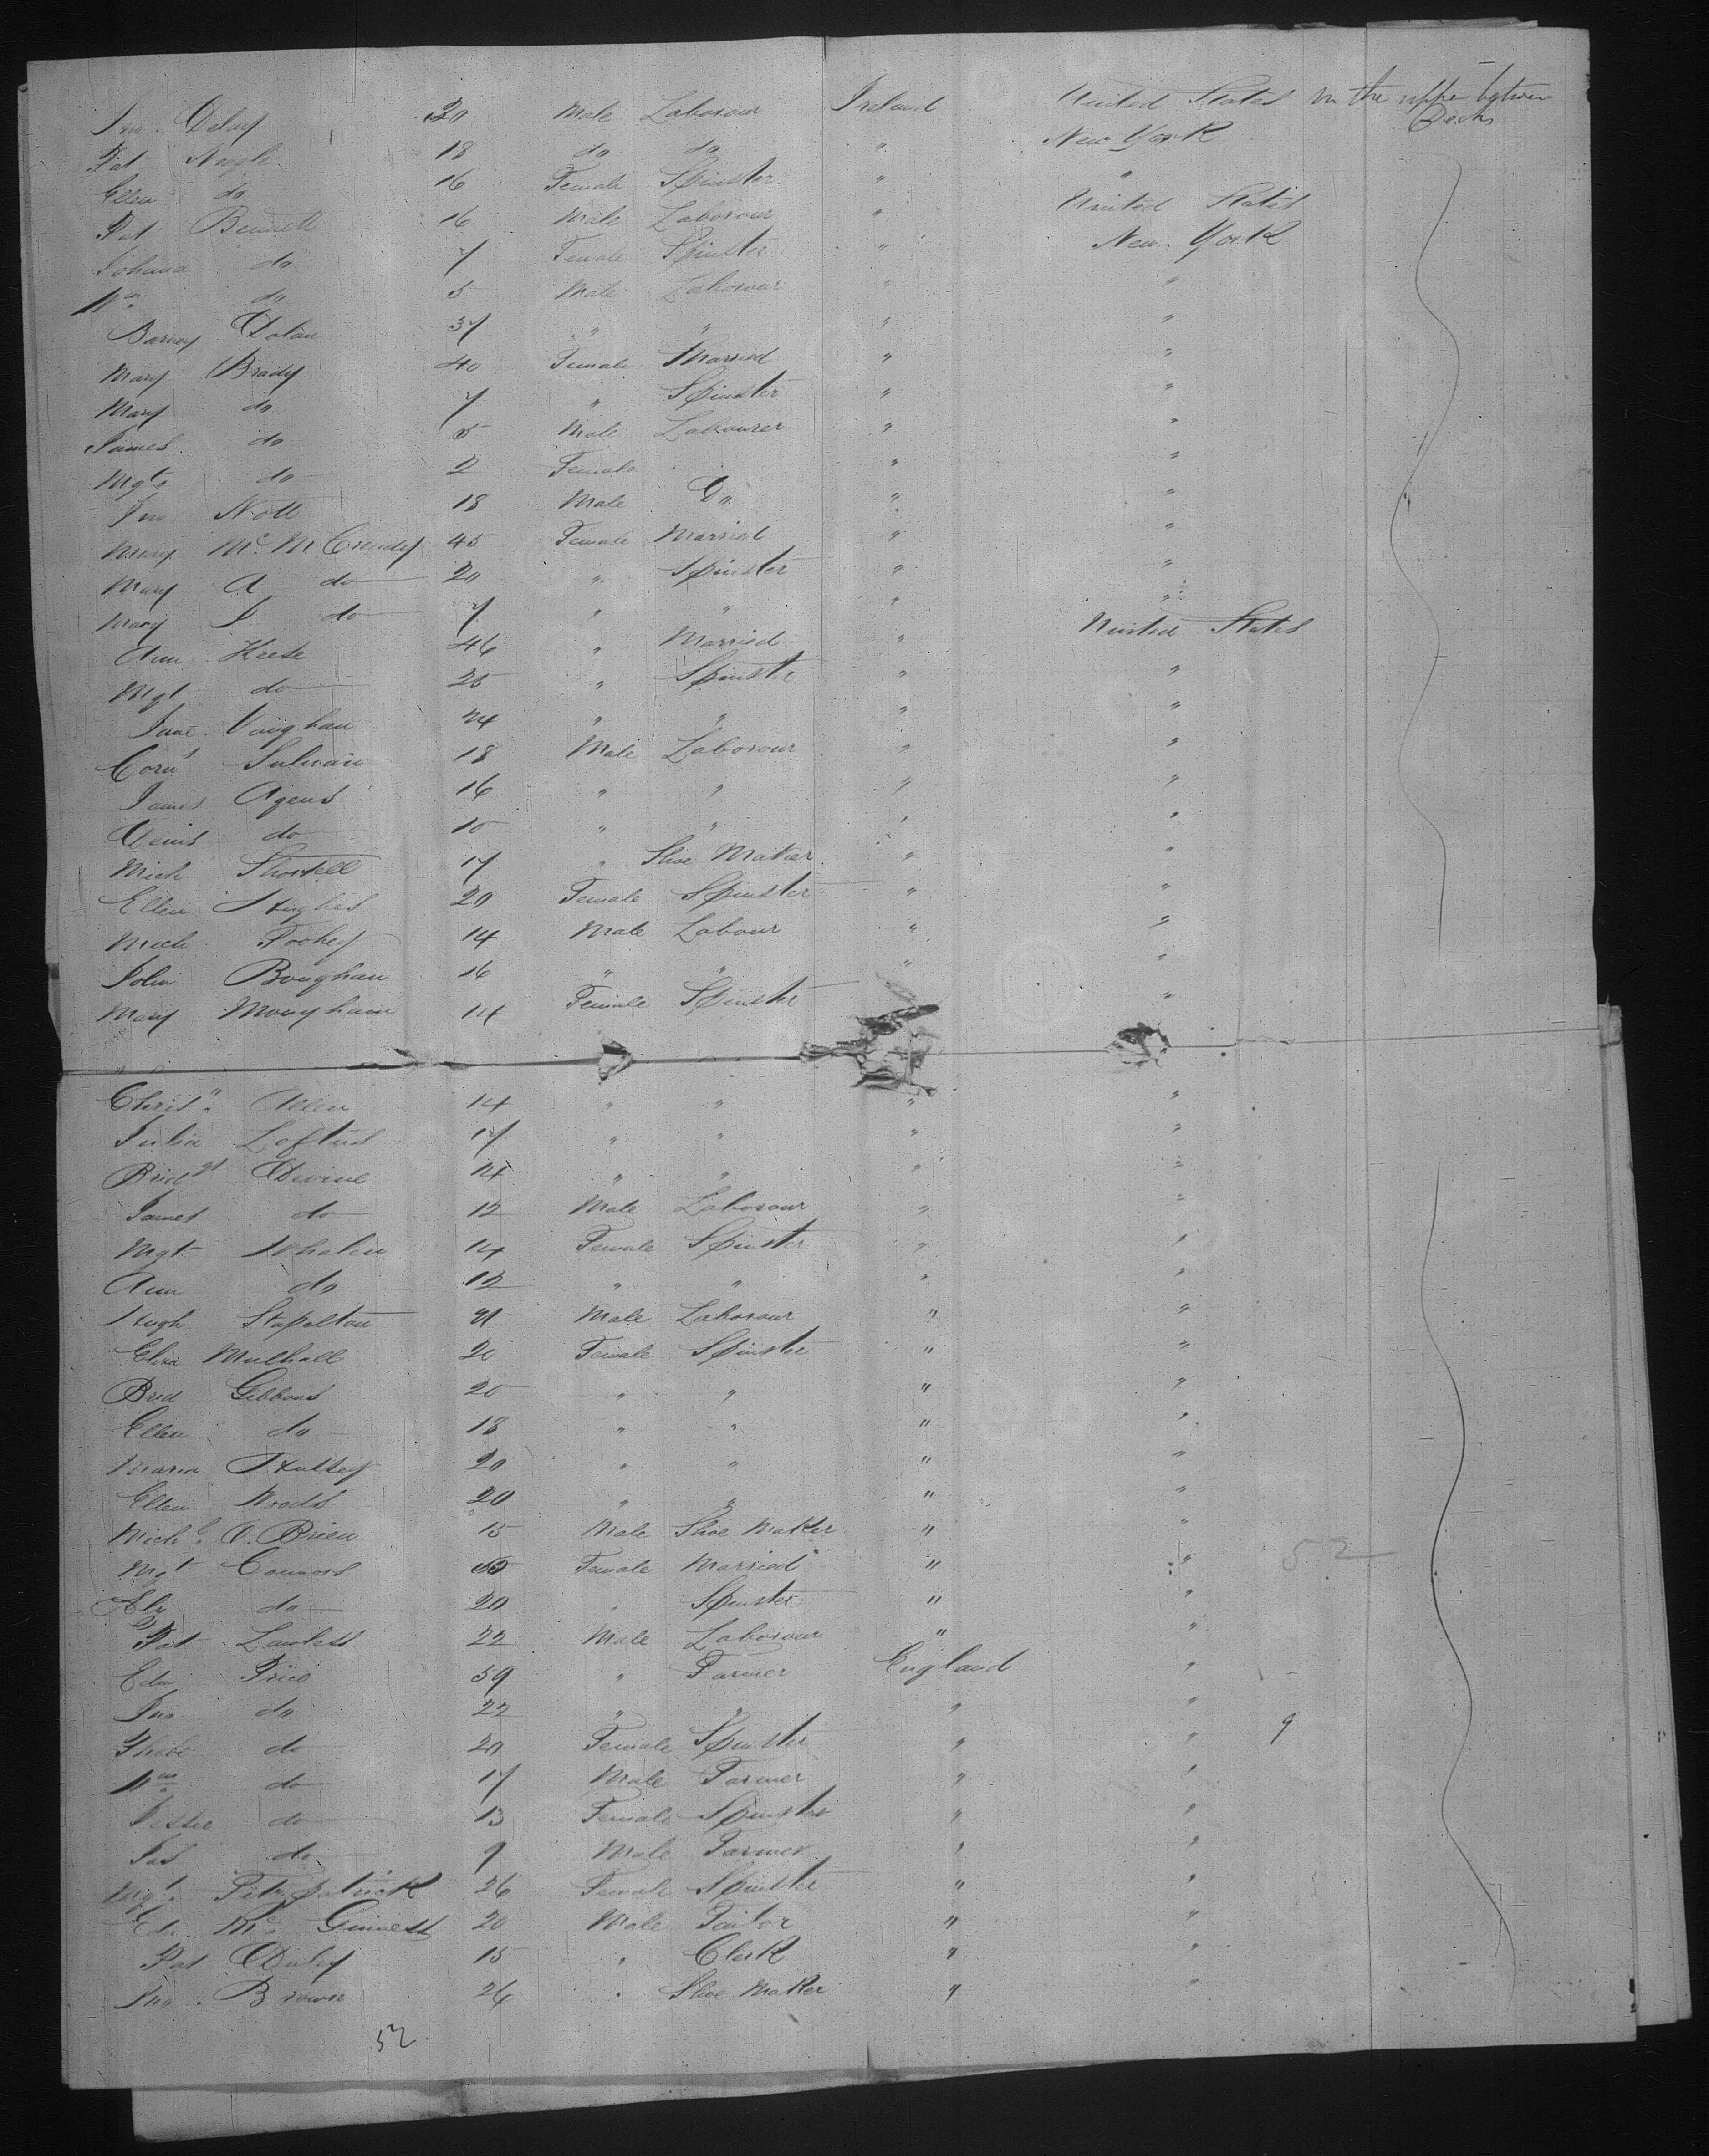 Jno. Delay 20 Male Laborour Ireland United States in the upper between
Pat Nagle 18 do do " New York Decks
Ellen do 16 Female Spinster " "
Pat Bennett 16 Male Laborour " United States
Johana do 7 Female Spinster " New York
Wm. do 5 Male Laborour " "
Barney Dolan 37 " " " "
Mary Brady 40 Female Married " "
Mary do 7 " Spinster " "
James do 5 Male Labourer " "
Mgt do 2 Female " "
Jno Nott 18 Male Do " "
Mary Mc. 45 Female Married " "
Mary A do 20 " Spinster " "
Mary J do 7 " " " "
Ann Keefe 46 " Married " United States
Mgt do 25 " Spinster " "
Jane Vaughan 24 " " " "
Corns Sulivan 18 Male Laborour " "
James Agens 16 " " " "
Denis do 10 " " " "
Mich Shortell 17 " Shoe Maker " "
Ellen Hughes 20 Female Spinster " "
Mich Foohey 14 Male Labour " "
John Boughan 16 " " " "
Mary Moughan 14 Female Spinster "
Christn. Allen 14 " " " "
Julia Loftus 17 " " " "
Bridgt Divine 14 " " " "
James do 12 Male Laborour " "
Mgt Whalen 14 Female Spinster " "
Ann do 12 " " " "
Hugh Stapelton 21 Male Laborour " "
Eliza Mulhall 20 Female Spinster " "
Brid Gibbons 20 " " " "
Ellen do 18 " " " "
Maria Hussey 20 " " " "
Ellen Woods 20 " " " "
Michl. O.Brien 15 Male Shoe Maker " "
Mgt Connors 50 Female Married " " 52
do 20 " Spinster " "
Pat Lawless 22 Male Laborour " "
Edw Price 59 " Farmer England "
Jno do 22 " " " "
Phebe do 20 Female Spinster " " 9
Wm. do 17 Male Farmer " "
Jessie do 13 Female Spinster " "
Jas do 9 Male Farmer " "
Mgt. Fitzpatrick 26 Female Spinster " "
Ed. Mc. Guiness 20 Male Tailor " "
Pat Daley 15 " Clerk " "
Jno. Brown 26 " Shoe Maker " "
52